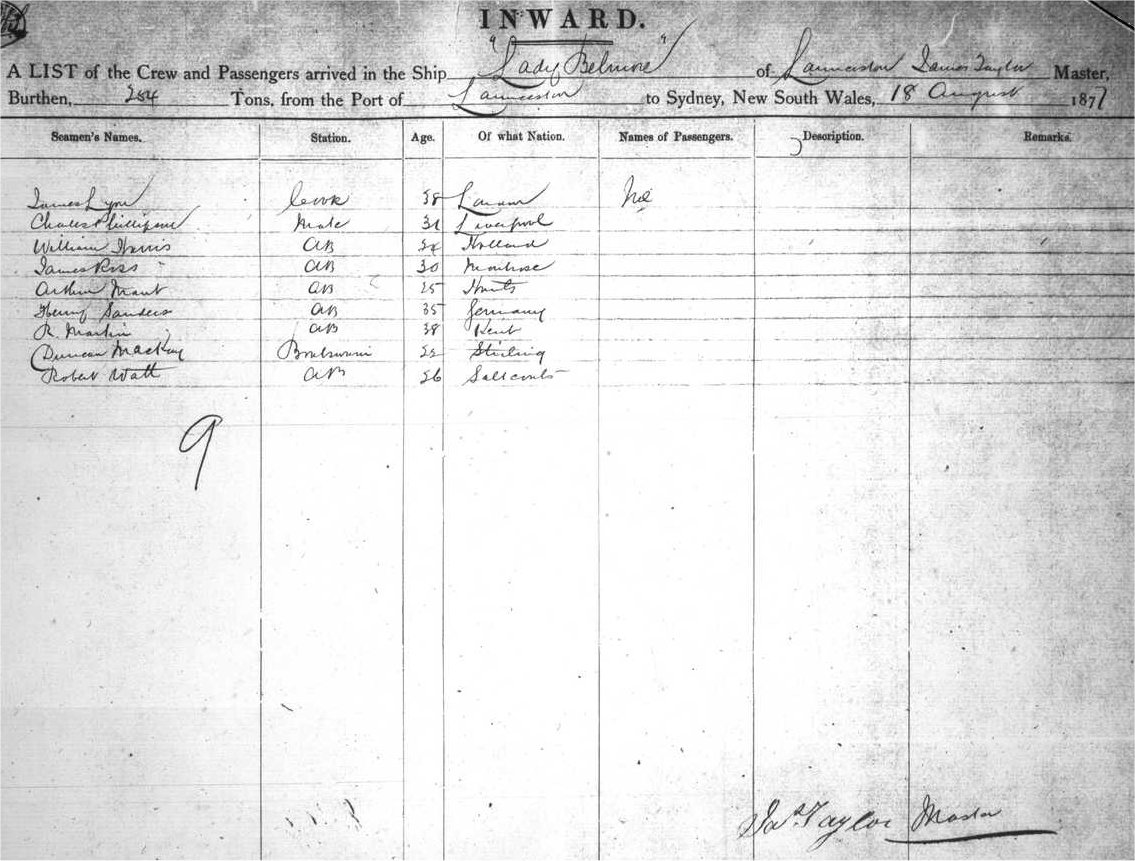 INWARD.
A LIST of the Crew and Passengers arrived in the Ship "Lady Belmore" of Launceston James Taylor Master,
Burthen, 284 Tons, from the Port of Launceston to Sydney, New South Wales, 18 August 1877
Seamen's Names. Station. Age. Of what Nation. Names of Passengers. Description. Remarks.
James Lyon Cook 38
Charles Phillipson Mate 31 Liverpool
William Harris AB 24 Holland
James Ross AB 30 Montrose
Arthur Mant AB 25 Hants
Henry Sanders AB 35 Germany
R Martin AB 38 Kent
Duncan MacKay 22 Stirling
Robert Watt AB 26 Saltcoats
9
Jas. Taylor Master